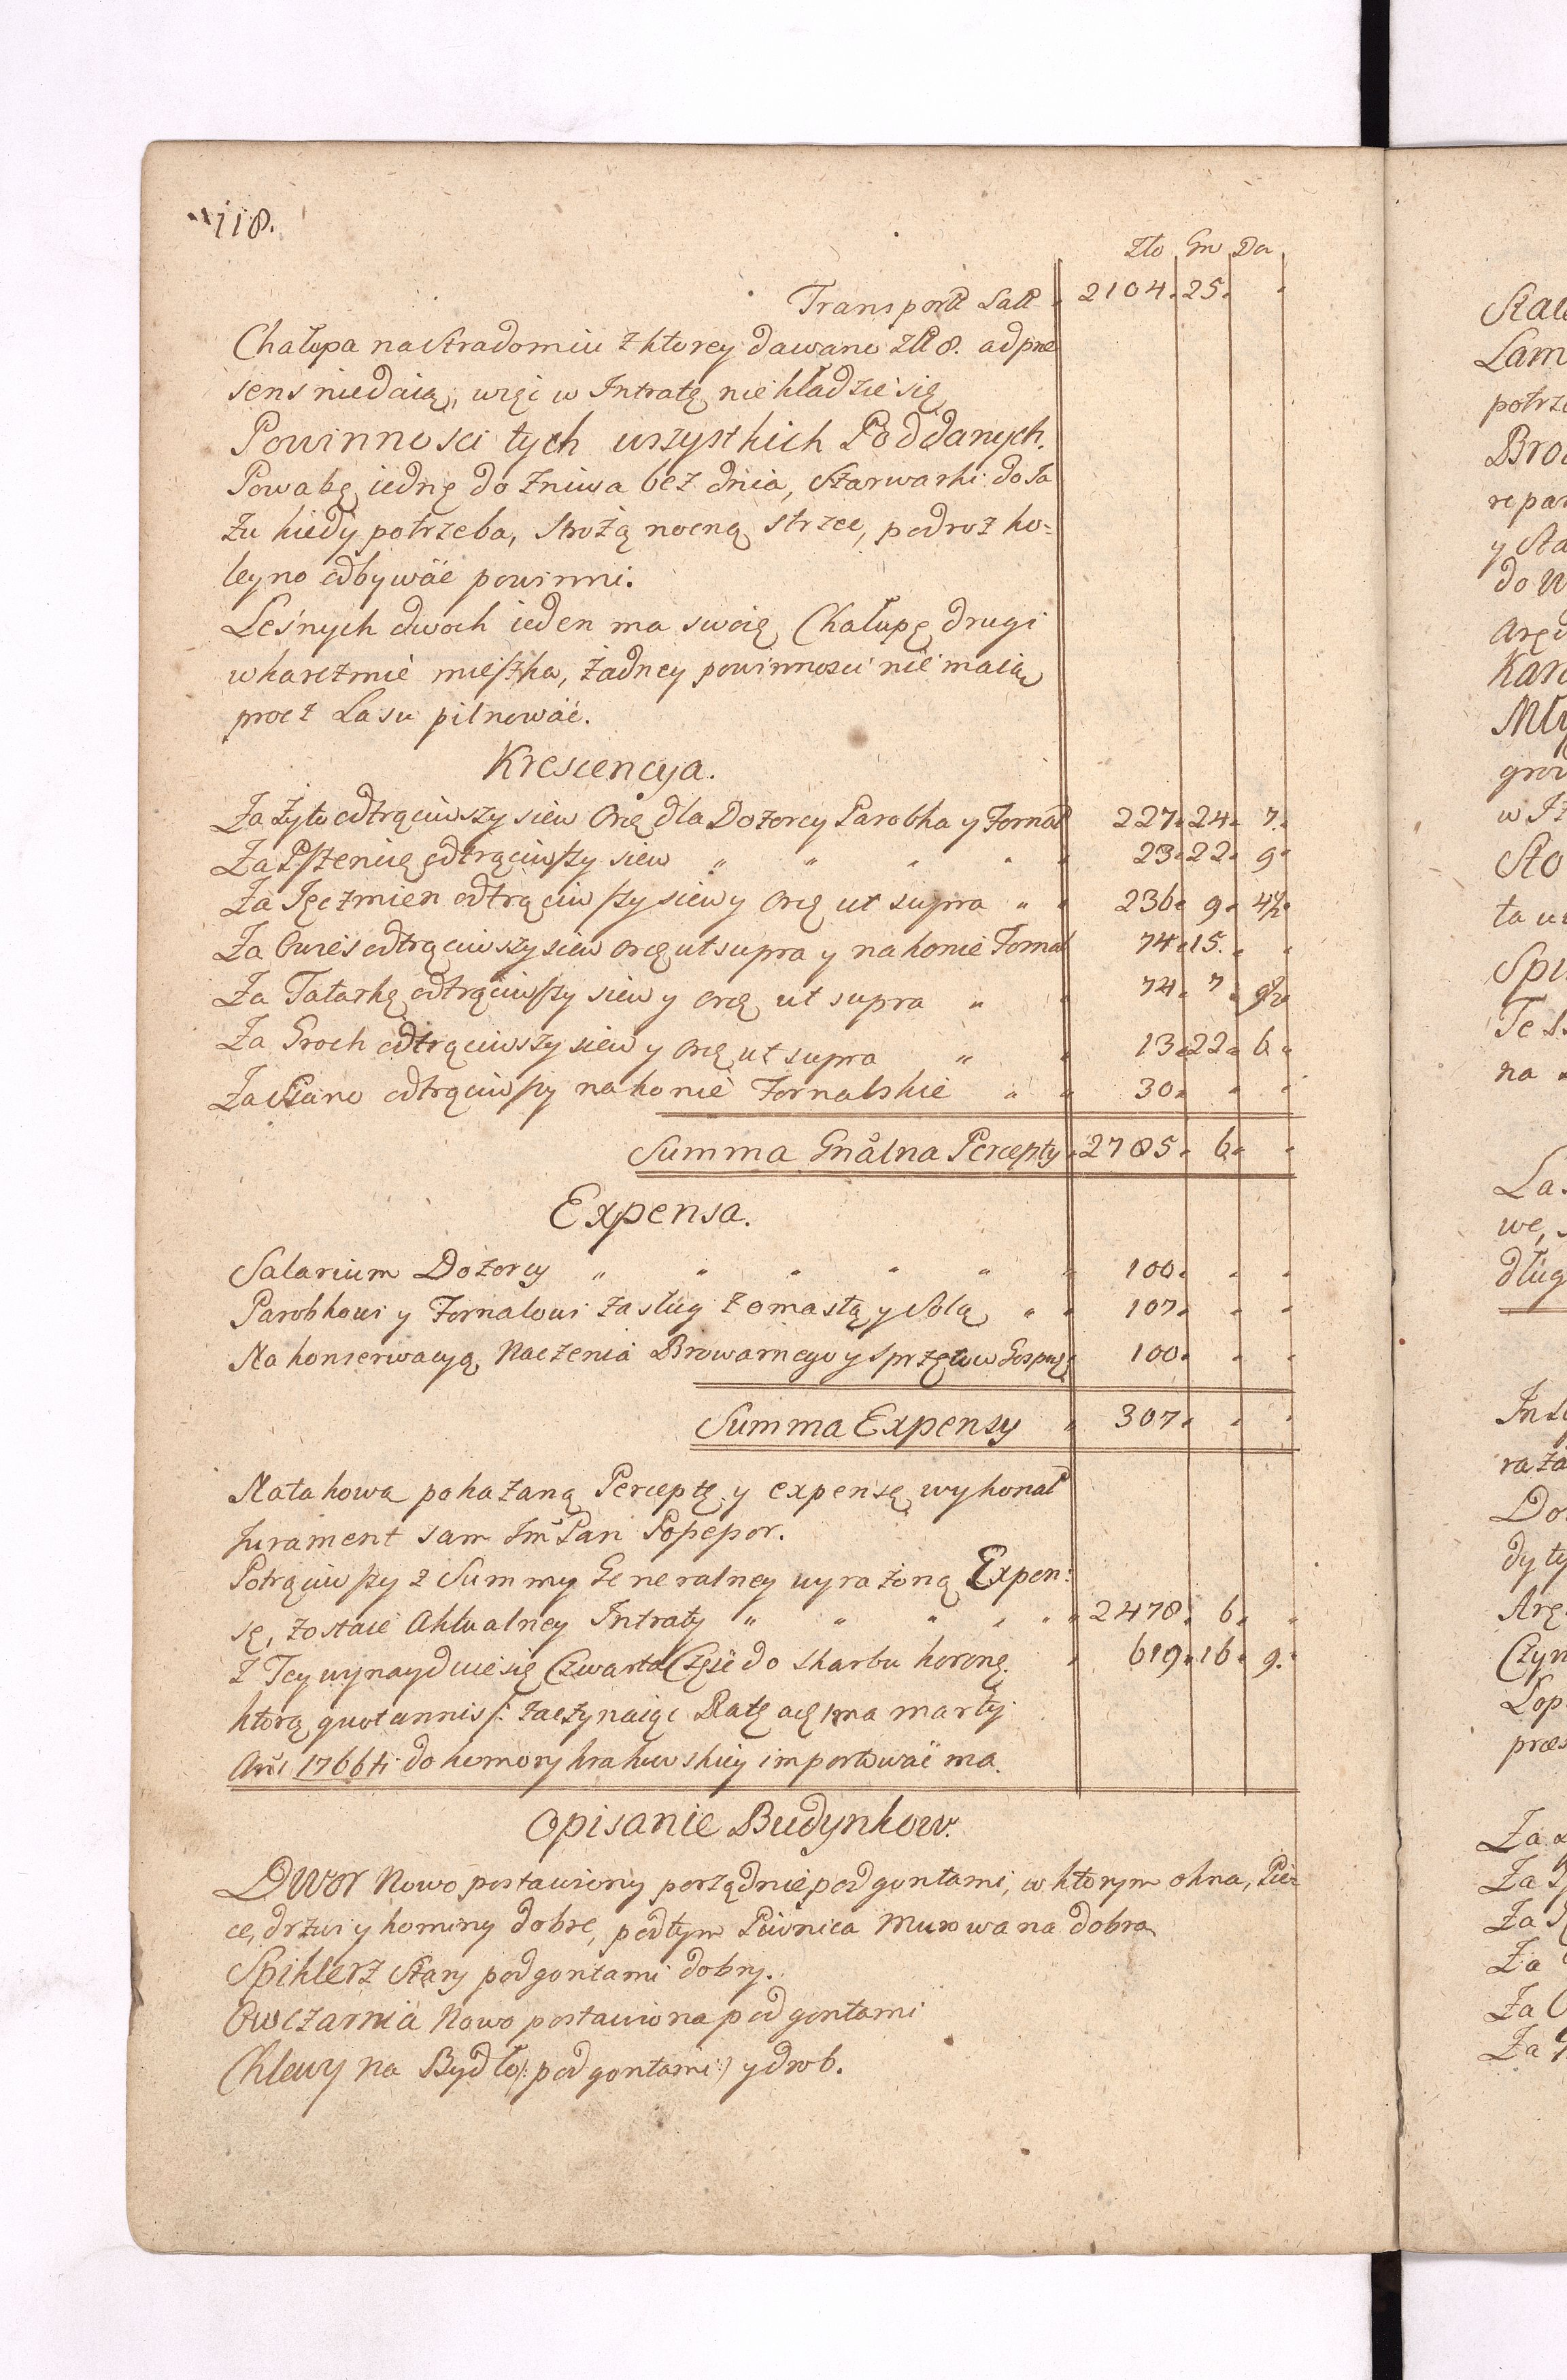 118.
Zło Gro Den
Transport Sałł 2104. 25.
Chałupa na Stradomiu z ktorey dawano Złł 8. ad præ
sens niedaią, więc w Intratę nie kładzie się
Powinnosci tych wszystkich Poddanych.
Powabę iednę do Żniwa bez dnia, Szarwarki do Ja
zu kiedy potrzeba, Strożą nocną strzec, podroż ko=
leyno odbywać powinni.
Leśnych dwoch ieden ma swoię Chałupę drugi
w karczmie mieszka, żadney powinnosci nie maią
procz Lasu pilnować.
Krescencya.
Za żyto odtrąciwszy siew Orę dla Dozorcy Parobka y Fornal 227. 24. 7.
Za Pszenicę odtrąciwszy siew „ „ „ „ „ 23. 22. 9.
Za Jęczmien odtrąciwszy siew y Orę ut supra „ „ 236. 9. 4½.
Za Owies odtrąciwszy siew Orę ut supra y na konie Fornal 74. 15.
Za Tatarkę odtrąciwszy siew y Orę ut supra „ „ 74. 7. 9½
Za Groch odtrąciwszy siew y Orę ut supra „ „ 13. 22. 6.
Za Siano odtrąciwszy na konie Fornalskie „ „ 30.
Summa Gnalna Percepty 2785. 6.
Expensa.
Salarium Dozorcy „ „ „ „ „ „ 100.
Parobkowi y Fornalowi zasług z omastą y Solą „ „ 107.
Na konserwacyą Naczenia Browarnego y Sprzętow Gosp 100.
Summa Expensy „ 307.
Na takowa pokazaną Perceptę y expensę wykonał
Jurament sam Jm Pan
Potrąciwszy z Summy Generalney wyrażoną Expen:
sę, zostaie Aktualney Intraty „ „ „ „ „ „ 2478. 6.
z Tey wynayduie się Czwarta Część do Skarbu koronę. 619. 16. 9.
ktorą quotannis s: zaczynaiąc Ratę a 1ma martij
Ani 1766ti do komory krakowskiey importować ma.
Opisanie Budynkow.
Dwor Nowo postawiony porządnie pod gontami, w ktorym okna, Pie
ce, drzwi y kominy dobre, pod tym Piwnica Murowana dobra
Spiklerz Stary pod gontami dobry.
Owczarnia Nowo postawiona pod gontami
Chlewy na Bydło /: pod gontami :/ y drob.